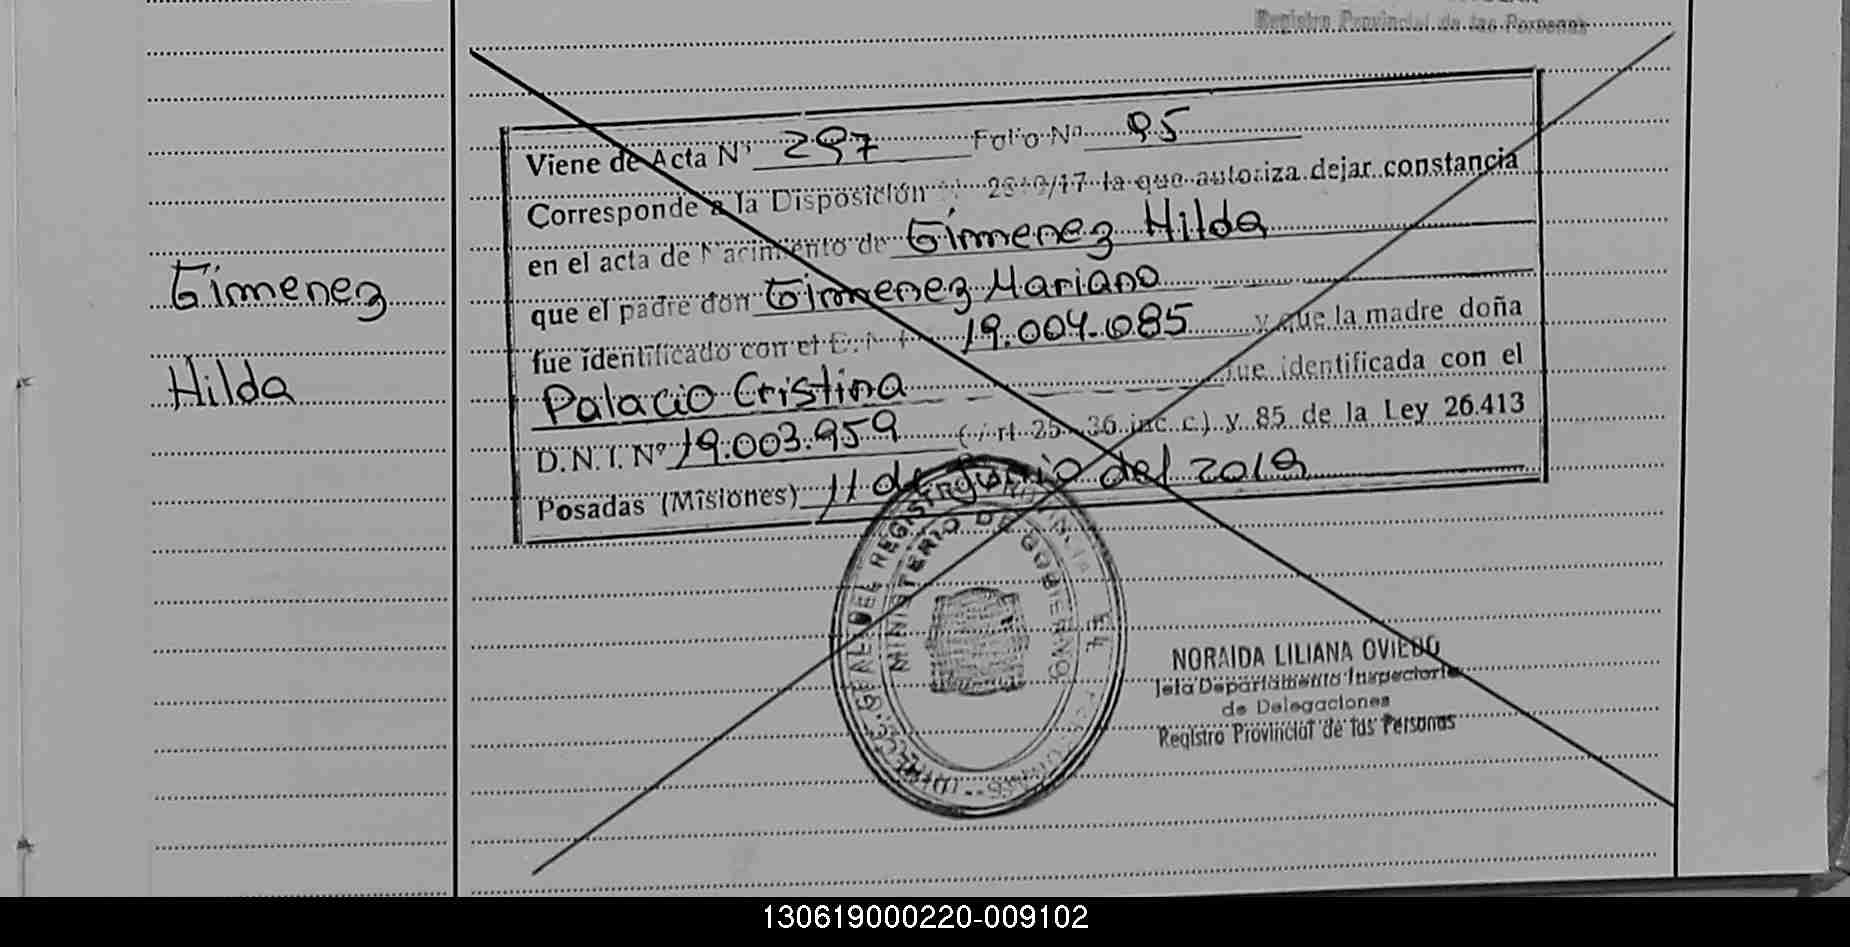 Registro Provincial de las Personas
Viene de Acta Nº 297 Folio Nº 95
Corresponde a la Disposición la que autoriza dejar constancia
en el acta de Nacimiento de Gimenez Hilda
que el padre don Gimenez Mariano
fue identificado con el 19.004.085 y que la madre doña
Palacio Cristina fue identificada con el
D.N.I. Nº 19.003.959 (Art 25, 36 inc. c) y 85 de la Ley 26.413
Posadas (Misiones) 11 de del 2019
Gimenez
Hilda
DEL REGISTRO
MINISTERIO DE GOBIERNO
NORAIDA LILIANA OVIEDO
Jefa Departamento Inspectoria
de Delegaciones
Registro Provincial de las Personas
130619000220-009102